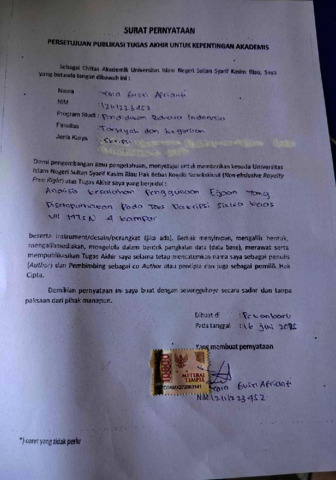 SURAT PERNYATAAN
PERSETUJUAN PUBLIKASI TUGAS AKHIR UNTUK KEPENTINGAN AKADEMIS
Sebagai Civitas Akademik Universitas Islam Negeri Sultan Syarif Kasim Riau, Saya
yang bertanda tangan dibawah ini :
Nama : Gusri Afrianti
NIM
Program Studi : Pendidikan Bahasa Indonesia
Fakultas : Tarbiyah dan Keguruan
Jenis Karya : Skripsi
Demi pengembangan ilmu pengetahuan, menyetujui untuk memberikan kepada Universitas
Islam Negeri Sultan Syarif Kasim Riau Hak Bebas Royalti Noneksklusif (Non-eksclusive Royalty
Free Right) atas Tugas Akhir saya yang berjudul :
Analisis kesalahan Penggunaan Ejaan Yang
Disempurnakan Pada Teks Deskripsi Siswa kelas
VII MTsN 4 kampar
Beserta instrument/desain/perangkat (jika ada). Berhak menyimpan, mengalih bentuk,
mengalihmediakan, mengelola dalam bentuk pangkalan data (data base), merawat serta
mempublikasikan Tugas Akhir saya selama tetap mencantumkan nama saya sebagai penulis
(Author) dan Pembimbing sebagai co Author atau pencipta dan juga sebagai pemilik Hak
Cipta.
Demikian pernyataan ini saya buat dengan sesungguhnya secara sadar dan tanpa
paksaan dari pihak manapun.
Dibuat di : Pekanbaru
Pada tanggal : 16 Juni
Yang membuat pernyataan
10000
METERAI
TEMPEL
Gusri Afrianti
NIM
*) coret yang tidak perlu